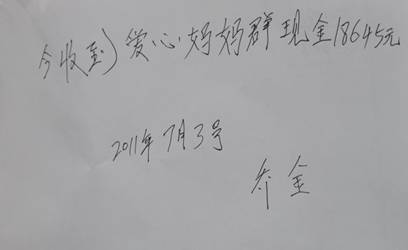 今收到爱心妈妈群现金18645元
2011年7月3号
乔金